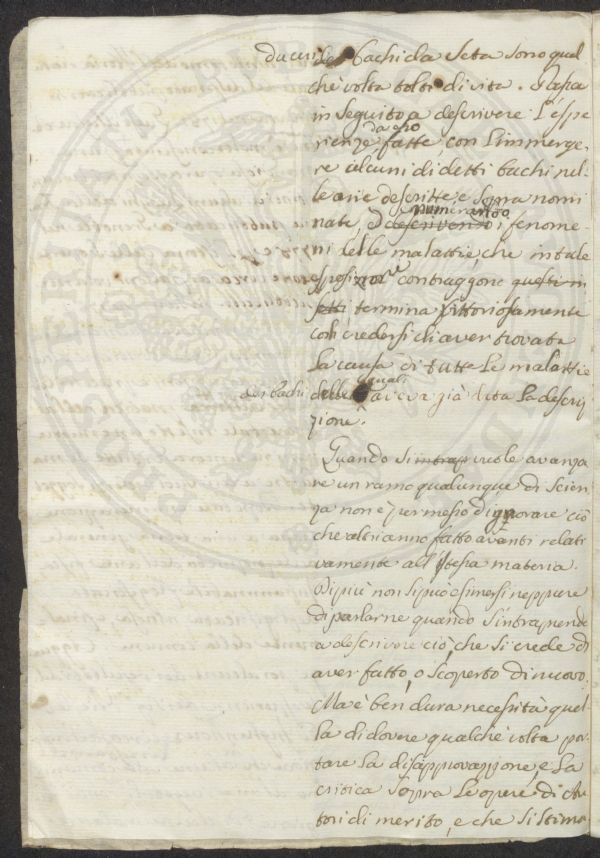 da cui li bachi da Seta sono qual
che volta tolti di vita. Passa
in seguito a descrivere l'espe
rienze da esso fatte, con l'immerge-
re alcuni di detti bachi nel-
le arie descritte, e sopra nomi
nate, e descrivendo numerando i fenome-
ni delle malattie, che in tale
esposizione contraggono questi in
setti, termina vittoriosamente
col credersi di aver trovata
la causa di tutte le malattie
dei bachi delle quali aveva già data la descri
zione.
Quando si intrap vuole avanza
re un ramo qualunque di Scien
za non è permesso d'ignorare ciò
che altri anno fatto avanti relati
vamente all'istessa materia.
Di più non si può esimersi neppure
di parlarne quando s'intraprende
a descrivere ciò, che si crede di
aver fatto, o scoperto di nuovo.
Ma è ben dura necessità quel
la di dovere qualche volta por
tare la disapprovazione, e la
critica sopra le opere di Au
tori di merito, e che si stima